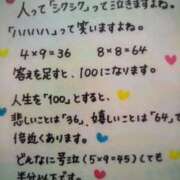 人って「シクシク」って泣きますよね。
「ハハハハ」って笑いますよね。
4×9=36　8×8=64
答えを足すと、100になります。
人生を「100」とすると、
悲しいことは「36」、嬉しいことは「64」で
倍近くあります。
どんなに号泣(5×9=45)しても
半分以下です。